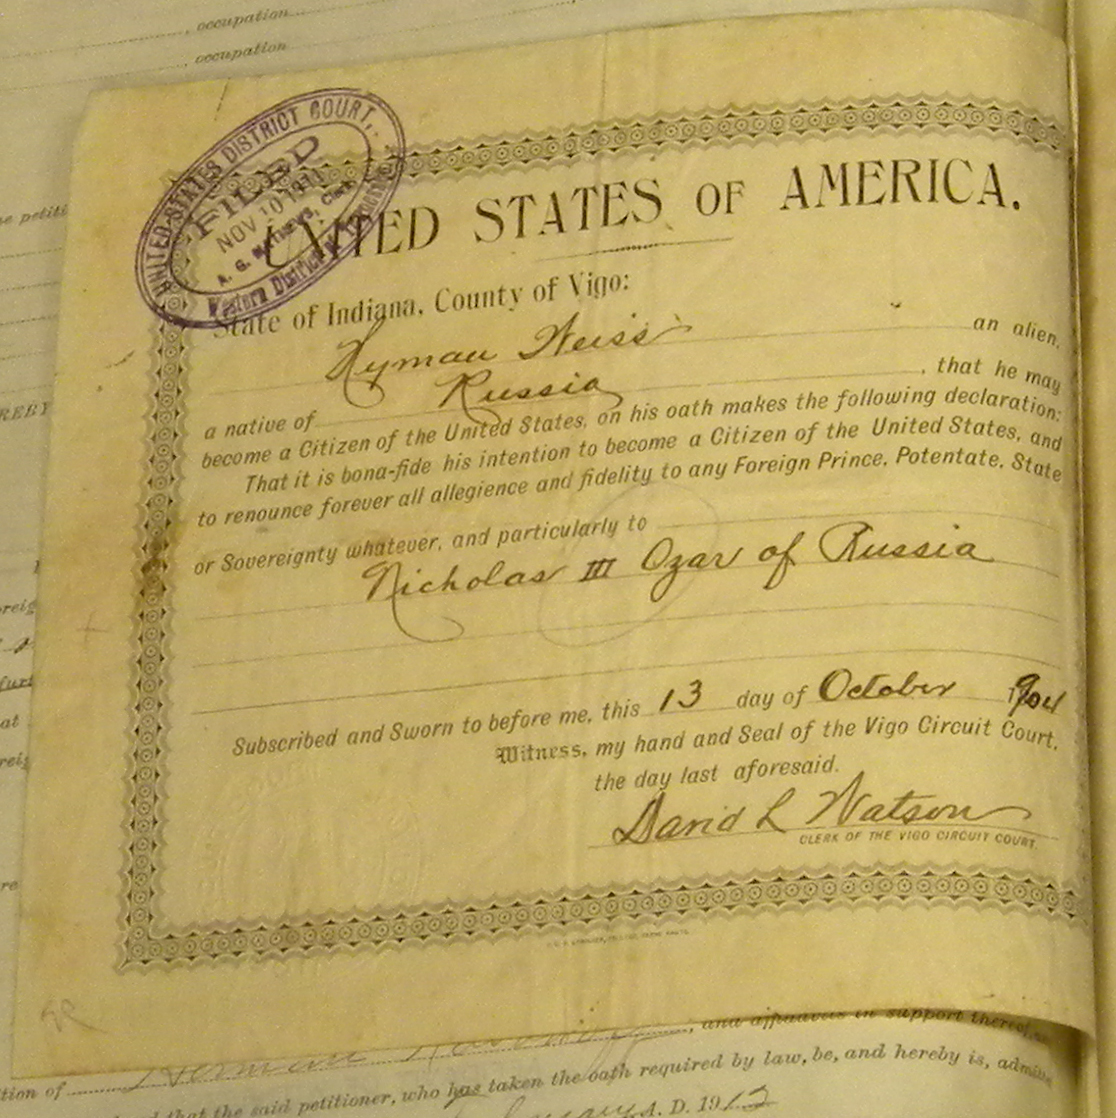 , occupation
, occupation
UNITED STATES DISTRICT COURT,
FILED
NOV 10 1911
A. G. MATTHEWS, Clerk
Western District of
UNITED STATES OF AMERICA.
State of Indiana, County of Vigo:
Hyman Weiss an alien,
a native of Russia , that he may
become a Citizen of the United States, on his oath makes the following declaration:
That it is bona-fide his intention to become a Citizen of the United States, and
to renounce forever all allegience and fidelity to any Foreign Prince, Potentate, State
or Sovereignty whatever, and particularly to
Nicholas III Czar of Russia
Subscribed and Sworn to before me, this 13 day of October 1904
Witness, my hand and Seal of the Vigo Circuit Court,
the day last aforesaid.
David L Watson
CLERK OF THE VIGO CIRCUIT COURT.
, and affidavits in support thereof,
tion of Herman
that the said petitioner, who has taken the oath required by law, be, and hereby is,
A. D. 1912